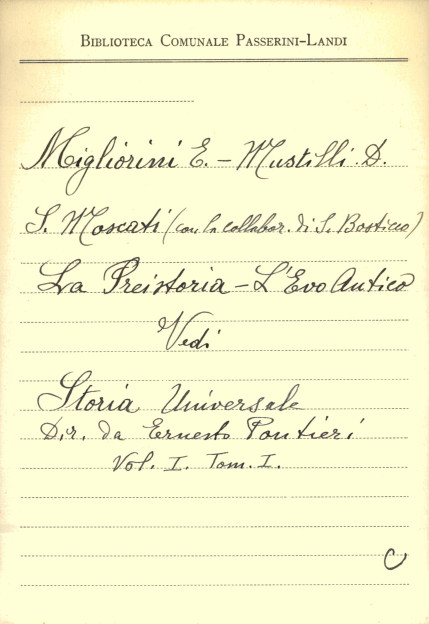 BIBLIOTECA COMUNALE PASSERINI-LANDI
Migliorini E. - Mustilli. D.
S. Moscati (con la collabor. di S. Bosticco)
La Preistoria - L'Evo Antico
Vedi
Storia Universale
Dir. da Ernesto Pontieri
Vol. I. Tom. I.
C